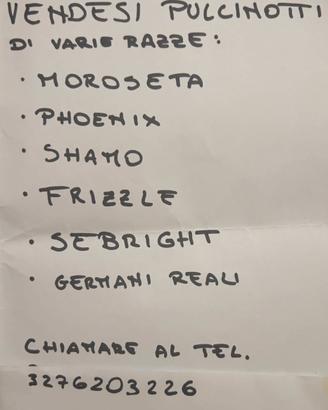 VENDESI PULCINOTTI
DI VARIE RAZZE:
· MOROSETA
· PHOENIX
· SHAMO
· FRIZZLE
· SEBRIGHT
· GERMANI REALI
CHIAMARE AL TEL.
3276203226